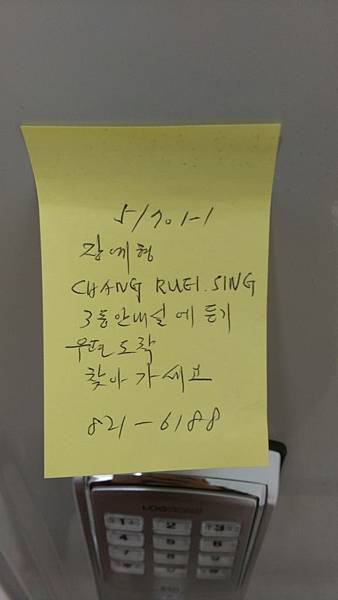 5/701-1
장예형
CHANG RUEI.SING
3동안내실에 등기
우편 도착
찾아가세요
821-6188
1 2 3
4 5 6
7 8 9
0